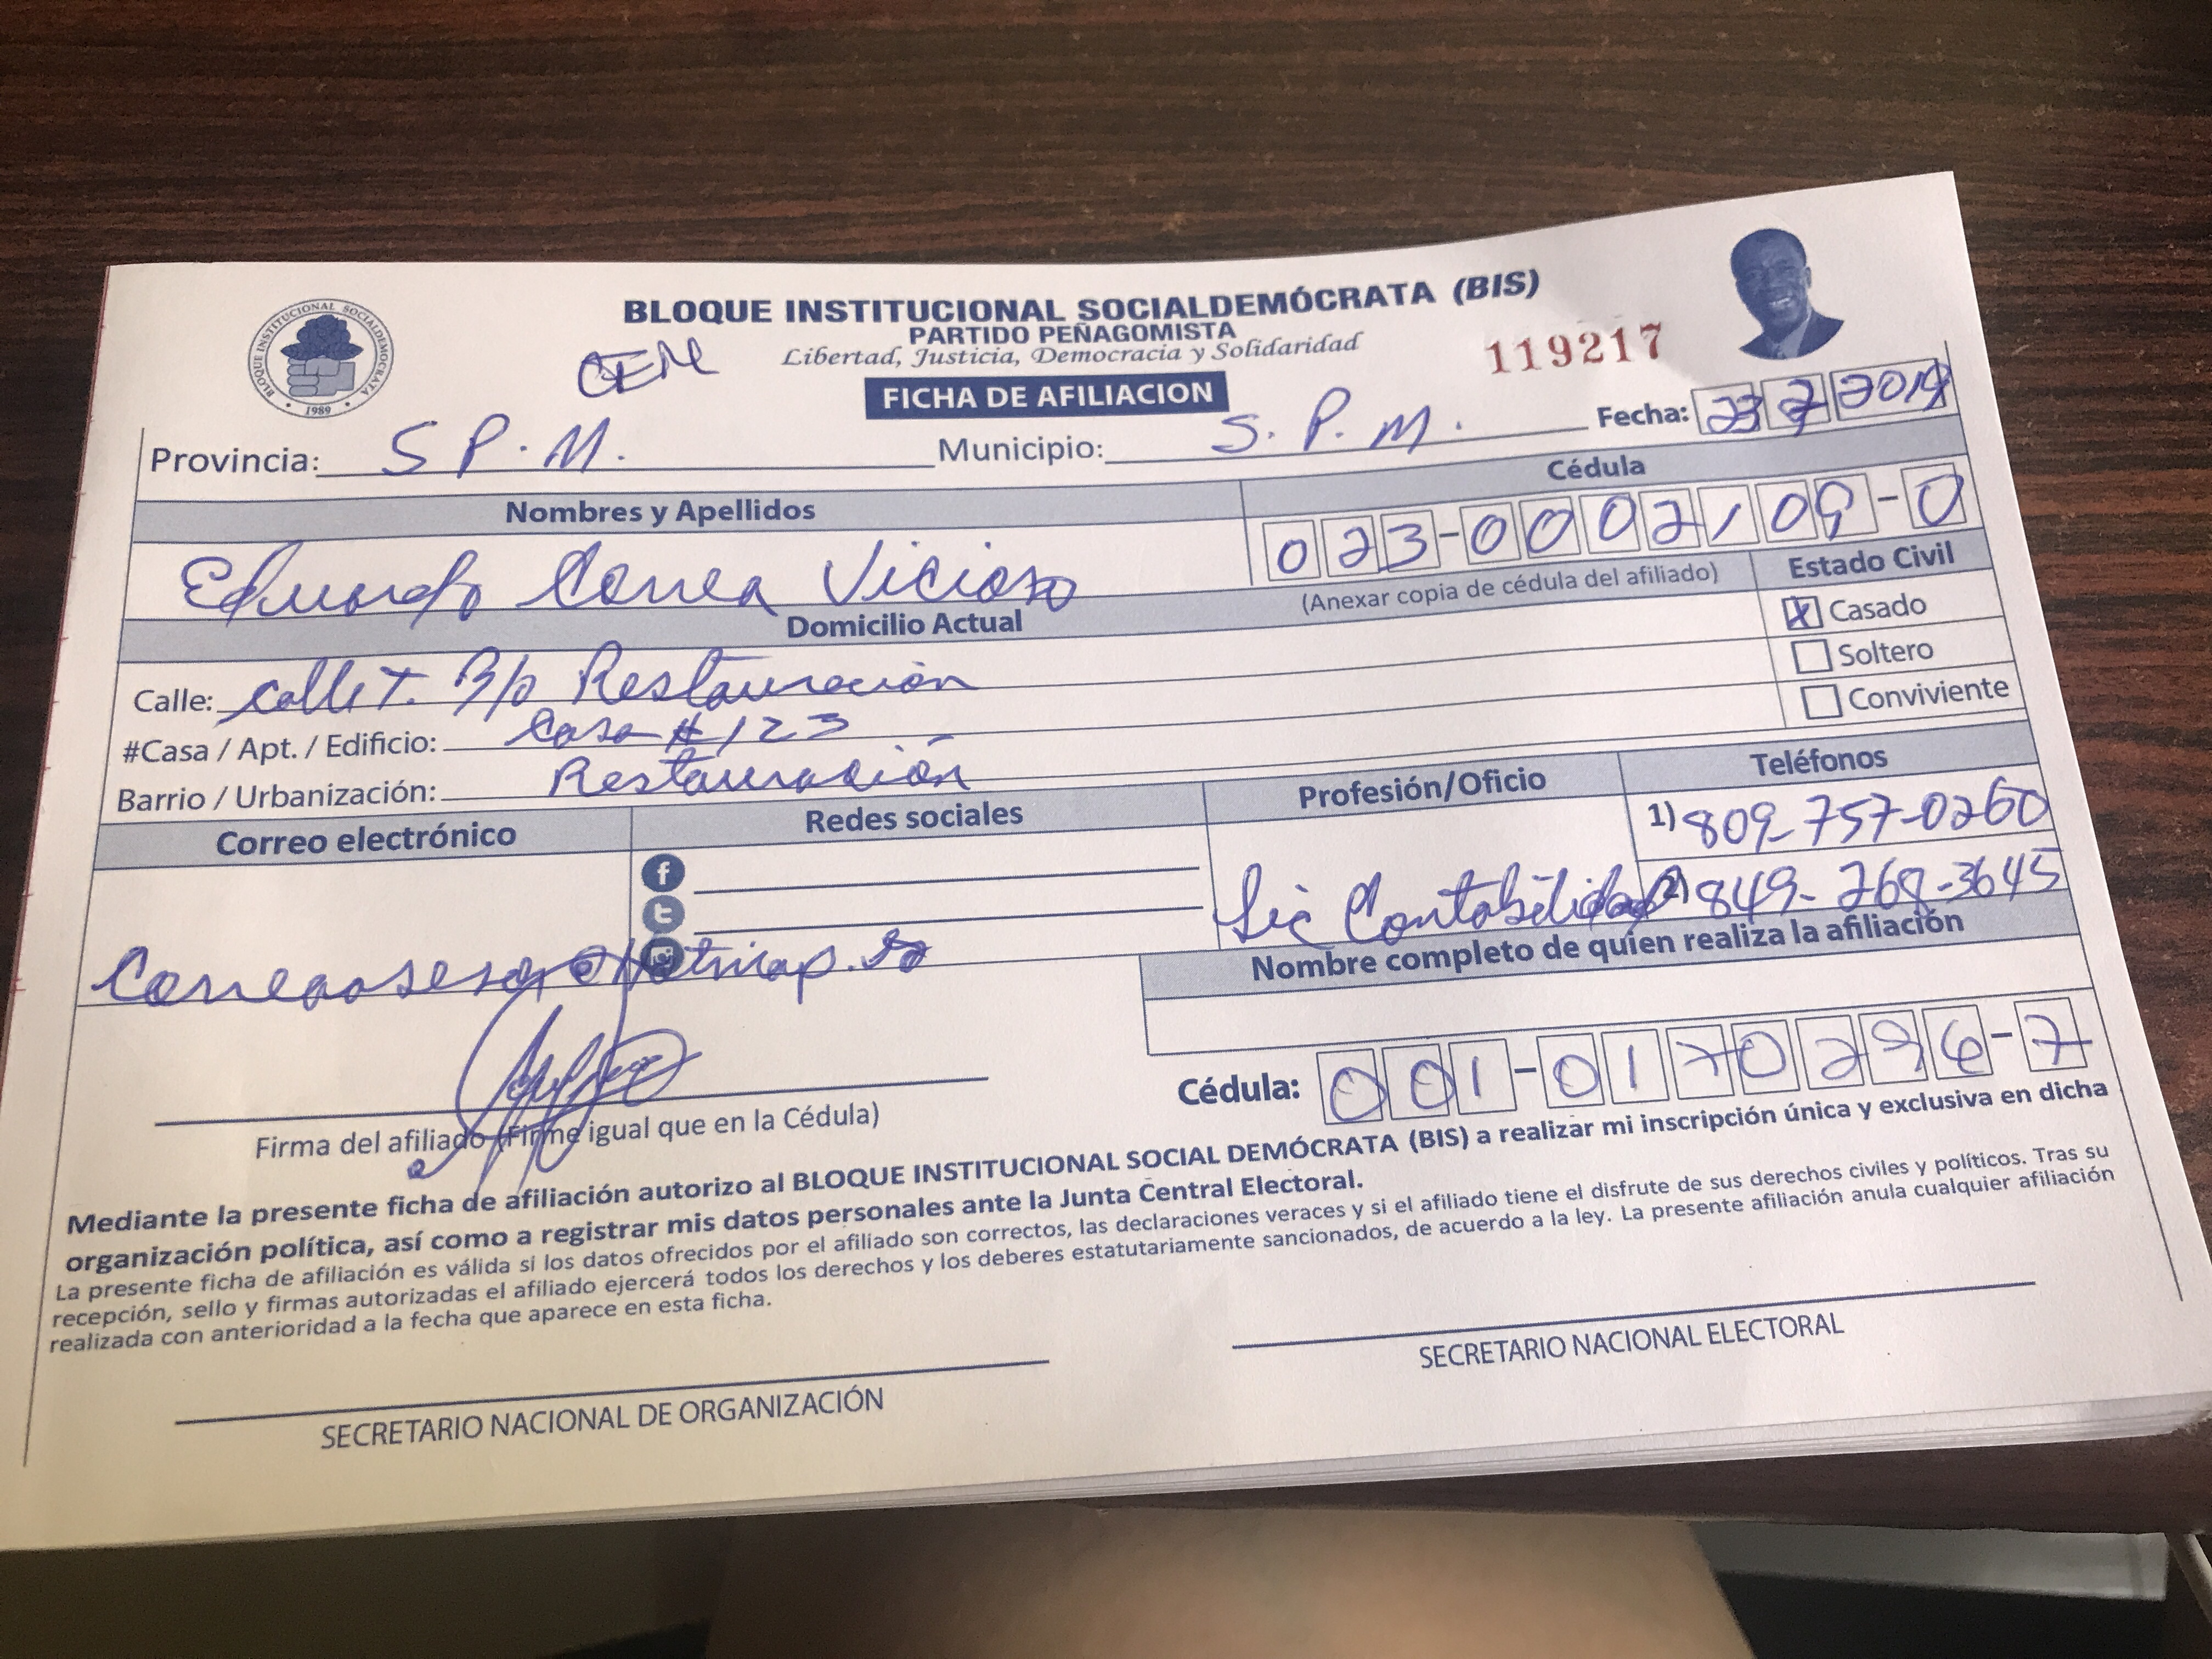 BLOQUE INSTITUCIONAL SOCIALDEMOCRATA
1989
BLOQUE INSTITUCIONAL SOCIALDEMÓCRATA (BIS)
PARTIDO PEÑAGOMISTA
Libertad, Justicia, Democracia y Solidaridad
CEM
119217
FICHA DE AFILIACION
Provincia: S P. M. Municipio: S. P. M. Fecha: 23 7 2019
Nombres y Apellidos Cédula
Eduardo Correa Vicioso 023-0002109-0
(Anexar copia de cédula del afiliado) Estado Civil
Domicilio Actual
X Casado
Soltero
Conviviente
Calle: calle T. B/o Restauración
#Casa / Apt. / Edificio: Casa # 123
Barrio / Urbanización: Restauración
Correo electrónico Redes sociales Profesión/Oficio Teléfonos
1) 809-757-0260
Lic Contabilidad 2) 849-268-3645
Nombre completo de quien realiza la afiliación
Cédula: 001-0170296-7
Firma del afiliado (Firme igual que en la Cédula)
Mediante la presente ficha de afiliación autorizo al BLOQUE INSTITUCIONAL SOCIAL DEMÓCRATA (BIS) a realizar mi inscripción única y exclusiva en dicha
organización política, así como a registrar mis datos personales ante la Junta Central Electoral.
La presente ficha de afiliación es válida si los datos ofrecidos por el afiliado son correctos, las declaraciones veraces y si el afiliado tiene el disfrute de sus derechos civiles y políticos. Tras su
recepción, sello y firmas autorizadas el afiliado ejercerá todos los derechos y los deberes estatutariamente sancionados, de acuerdo a la ley. La presente afiliación anula cualquier afiliación
realizada con anterioridad a la fecha que aparece en esta ficha.
SECRETARIO NACIONAL DE ORGANIZACIÓN
SECRETARIO NACIONAL ELECTORAL